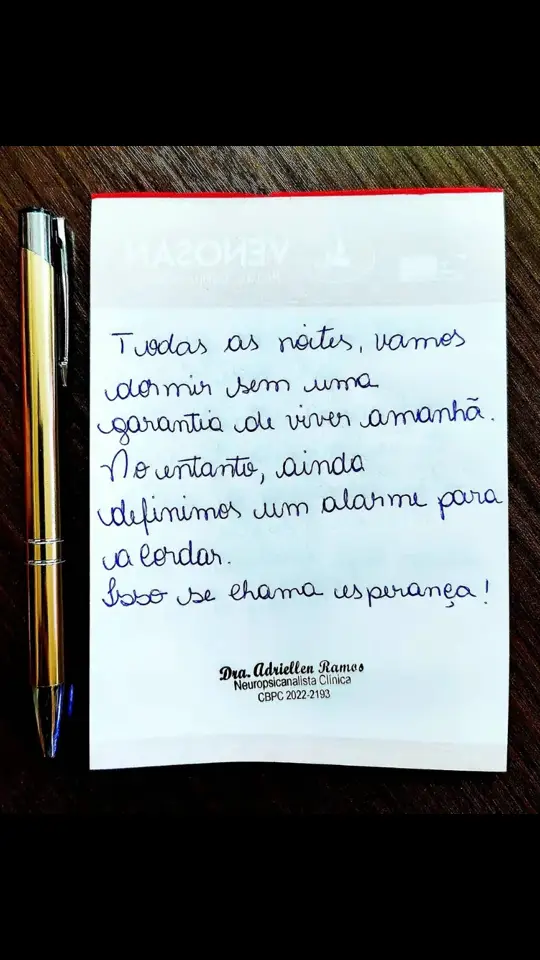 VENOSAN
Todas as noites, vamos
dormir sem uma
garantia de viver amanhã.
No entanto, ainda
definimos um alarme para
acordar.
Isso se chama esperança!
Dra. Adriellen Ramos
Neuropsicanalista Clínica
CBPC 2022-2193